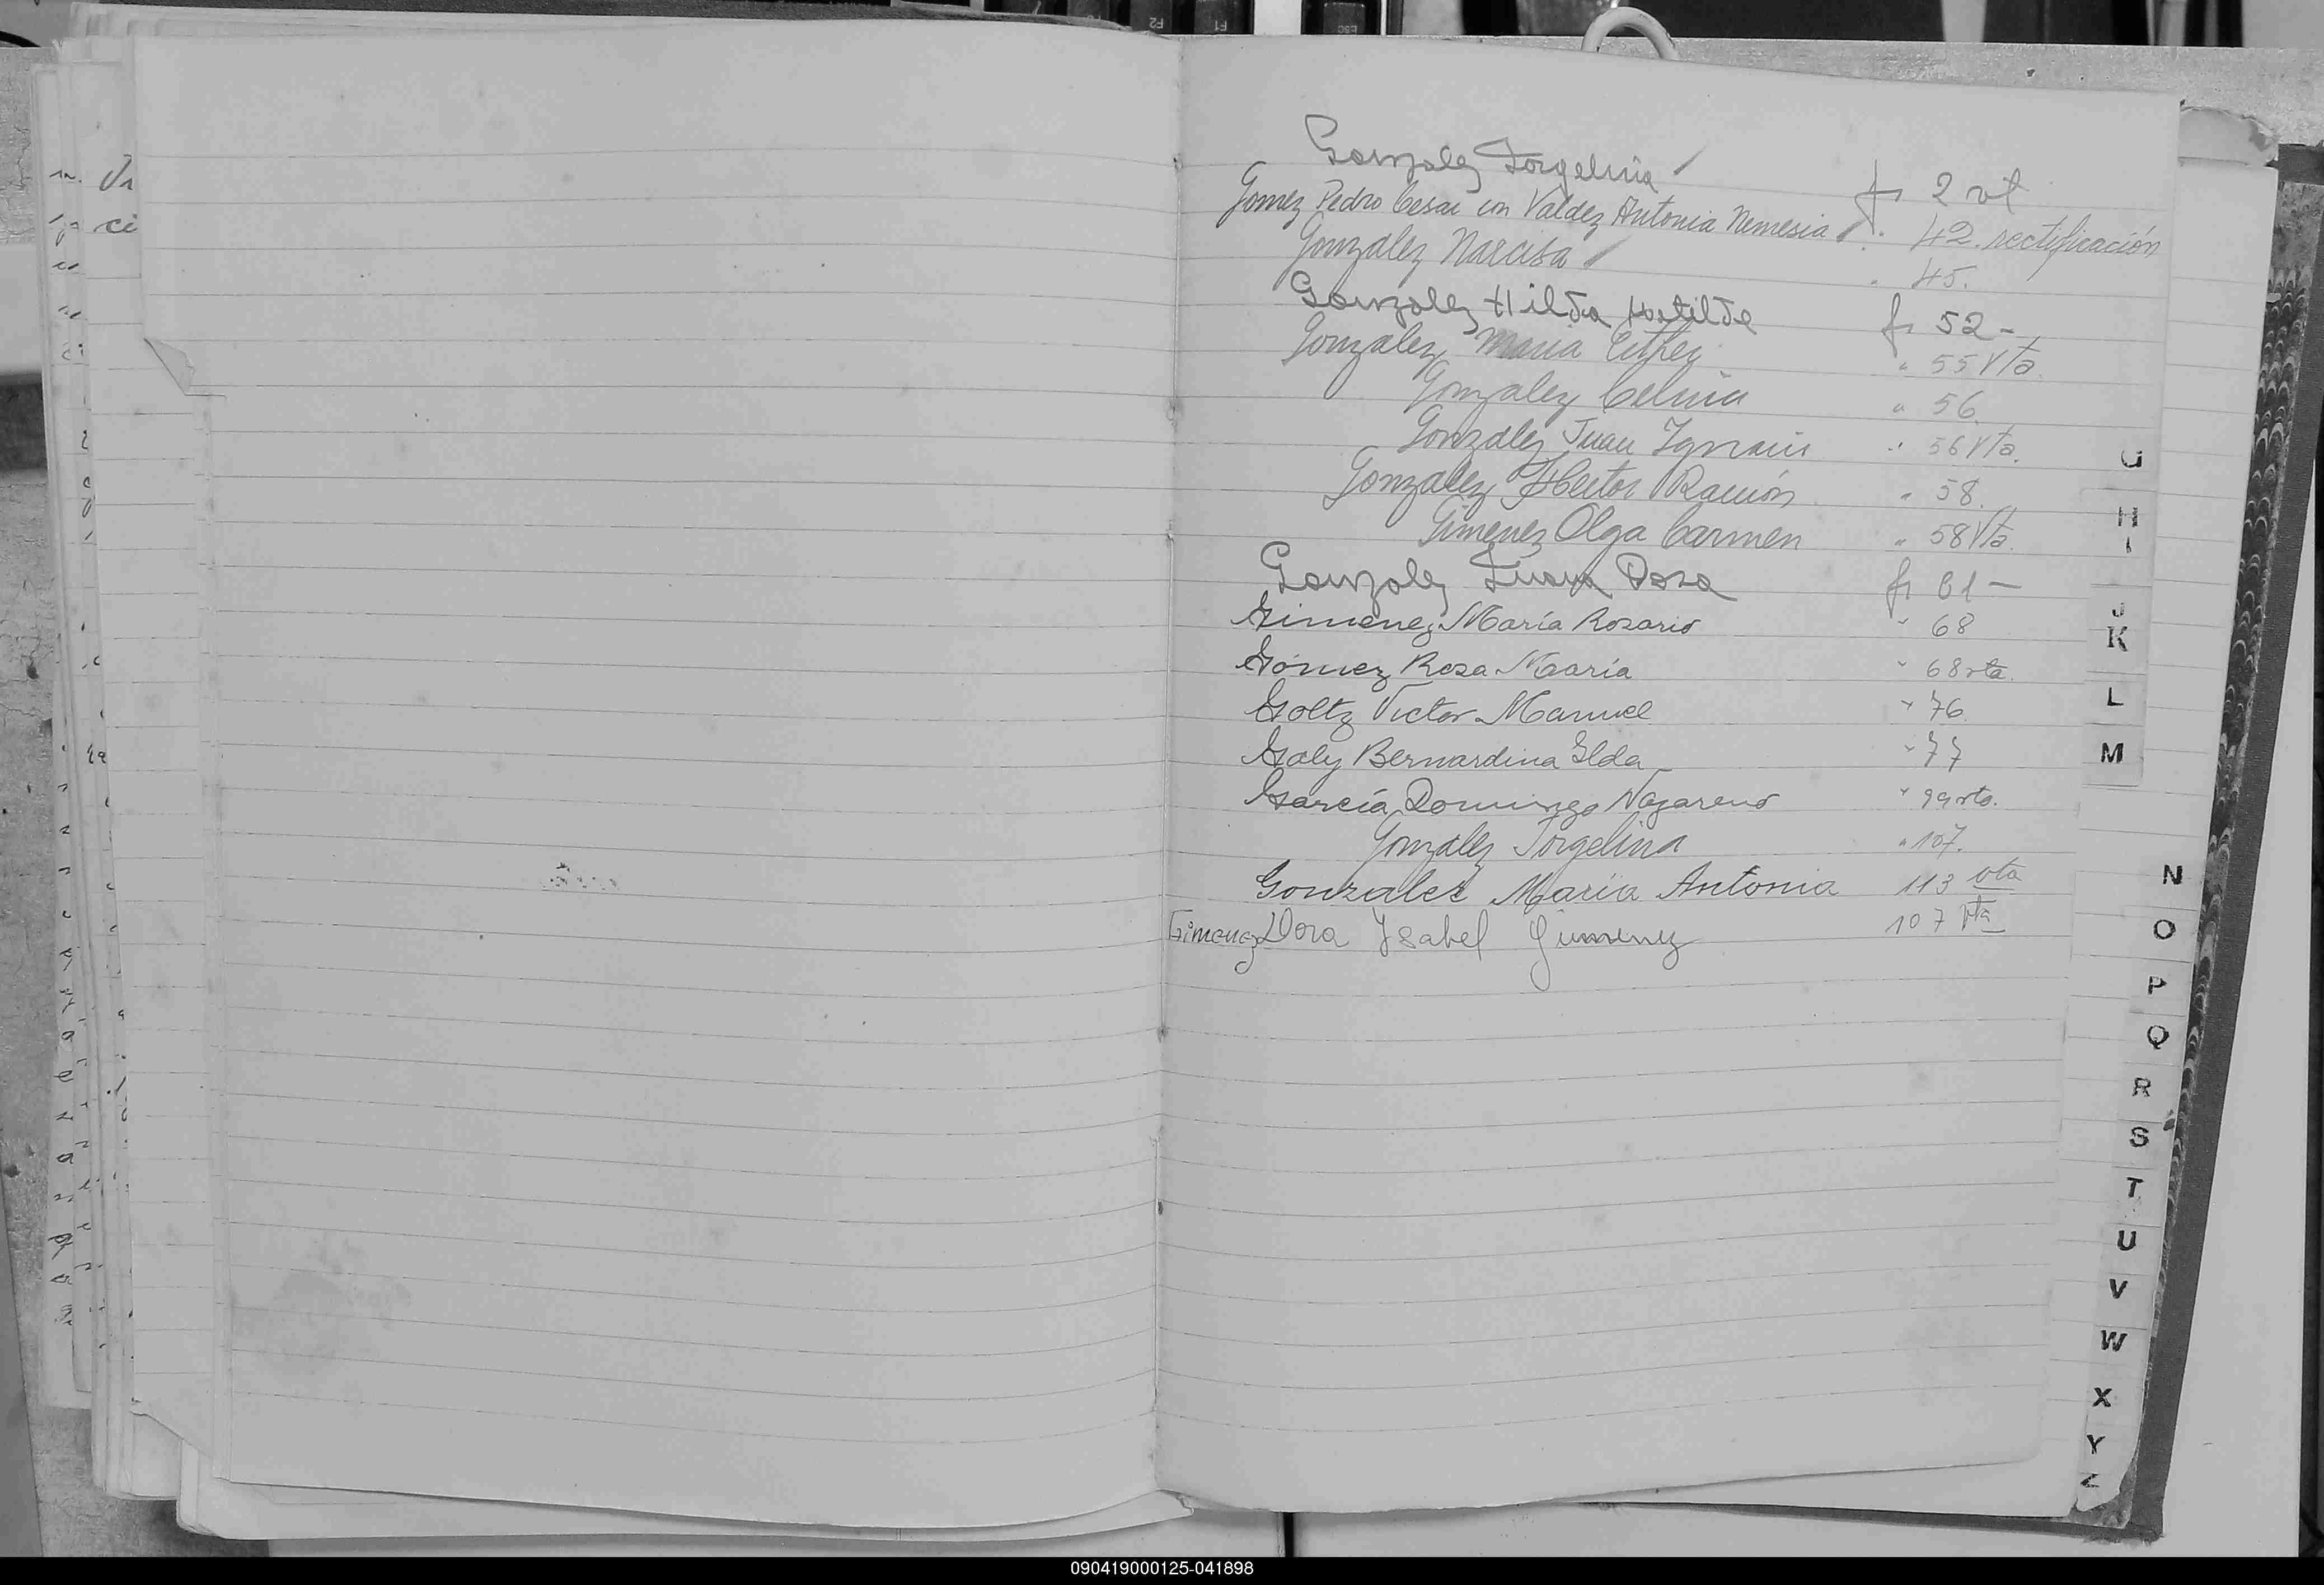 Gonzalez Jorgelina fs 2 vt
Gomez Pedro Cesar con Valdez Antonia Nemesia " 42 rectificación
González Narcisa " 45.
Gonzalez Hilda Matilde fs 52 -
Gonzalez Maria Esther " 55 Vta.
Gonzalez Celina " 56
González Juan Ignacio " 56 Vta.
González Hector Ramón " 58.
Gimenez Olga Carmen " 58 Vta.
Gonzalez Juana Rosa fs 61 -
Gimenez María Rosario " 68
Gómez Rosa María " 68 vta.
Goltz Victor Manuel " 76
Galy Bernardina Ilda " 77
García Domingo Nazareno " 99 vta.
González Jorgelina " 107.
Gonzalez María Antonia 113 vta
Gimenez Dora Ysabel Gimenez 107 vta
G
H
I
J
K
L
M
N
O
P
Q
R
S
T
U
V
W
X
Y
Z
F2
F1
ESC
090419000125-041898